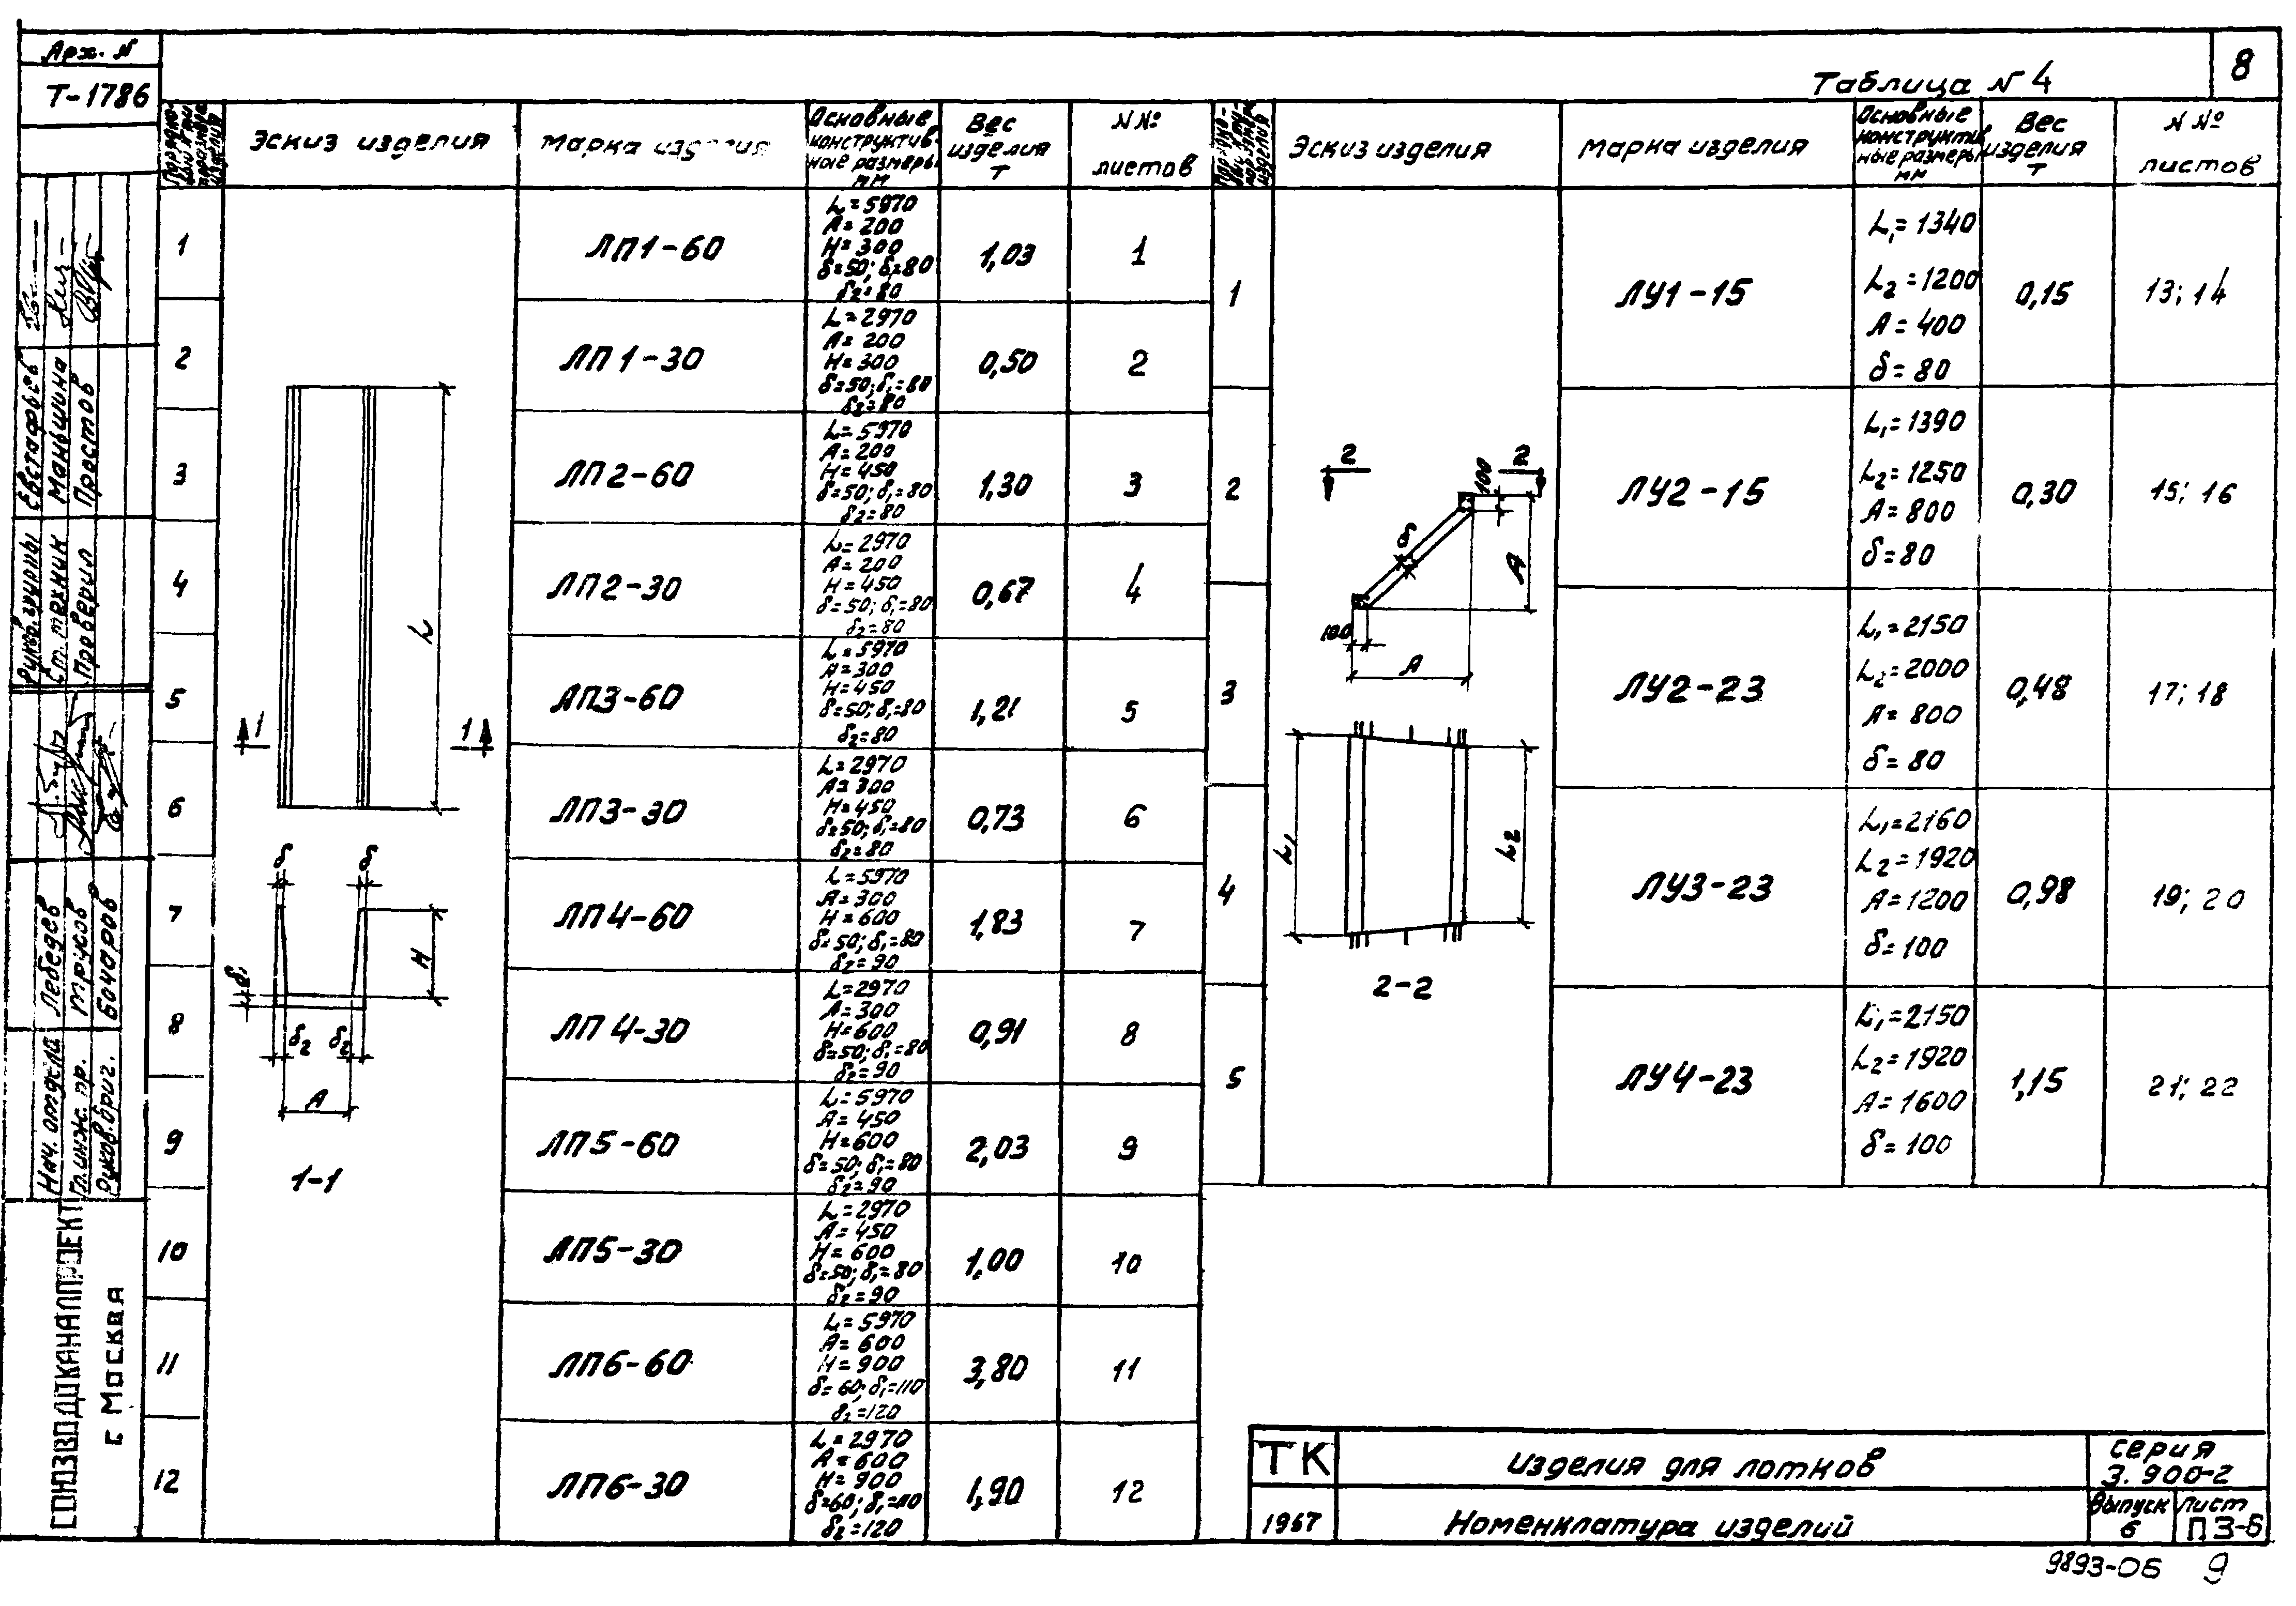 Арх. N
Т-1786
8
Таблица N 4
Эскиз изделия
Марка изделия
Основные конструктивные размеры мм
Вес изделия т
NNо листов
1
ЛП1-60
L=5970
A=200
H=300
δ=50; δ₁=80
δ₂=80
1,03
1
2
ЛП1-30
L=2970
A=200
H=300
δ=50; δ₁=80
δ₂=80
0,50
2
3
ЛП2-60
L=5970
A=200
H=450
δ=50; δ₁=80
δ₂=80
1,30
3
4
ЛП2-30
L=2970
A=200
H=450
δ=50; δ₁=80
δ₂=80
0,67
4
5
ЛП3-60
L=5970
A=300
H=450
δ=50; δ₁=80
δ₂=80
1,21
5
6
ЛП3-30
L=2970
A=300
H=450
δ=50; δ₁=80
δ₂=80
0,73
6
7
ЛП4-60
L=5970
A=300
H=600
δ=50; δ₁=80
δ₂=90
1,83
7
8
ЛП4-30
L=2970
A=300
H=600
δ=50; δ₁=80
δ₂=90
0,91
8
9
ЛП5-60
L=5970
A=450
H=600
δ=50; δ₁=80
δ₂=90
2,03
9
10
ЛП5-30
L=2970
A=450
H=600
δ=50; δ₁=80
δ₂=90
1,00
10
11
ЛП6-60
L=5970
A=600
H=900
δ=60; δ₁=110
δ₂=120
3,80
11
12
ЛП6-30
L=2970
A=600
H=900
δ=60; δ₁=110
δ₂=120
1,90
12
L
1
1
δ
δ
H
δ₁
δ₂
δ₂
A
1-1
Эскиз изделия
Марка изделия
Основные конструктивные размеры мм
Вес изделия т
N Nо листов
1
ЛУ1-15
L₁=1340
L₂=1200
A=400
δ=80
0,15
13; 14
2
ЛУ2-15
L₁=1390
L₂=1250
A=800
δ=80
0,30
15; 16
3
ЛУ2-23
L₁=2150
L₂=2000
A=800
δ=80
0,48
17; 18
4
ЛУ3-23
L₁=2160
L₂=1920
A=1200
δ=100
0,98
19; 20
5
ЛУ4-23
L₁=2150
L₂=1920
A=1600
δ=100
1,15
21; 22
2
2
100
δ
A
100
A
L₁
L₂
2-2
Руков. группы Евстафьев
Ст. техник Маньшина
Проверил Простов
Нач. отдела Лебедев
Гл. инж. пр. Трусов
Руков. бриг. Бочаров
СОЮЗВОДОКАНАЛПРОЕКТ
г Москва
ТК
Изделия для лотков
серия
3.900-2
1967
Номенклатура изделий
Выпуск
6
лист
ПЗ-6
9893-06
9